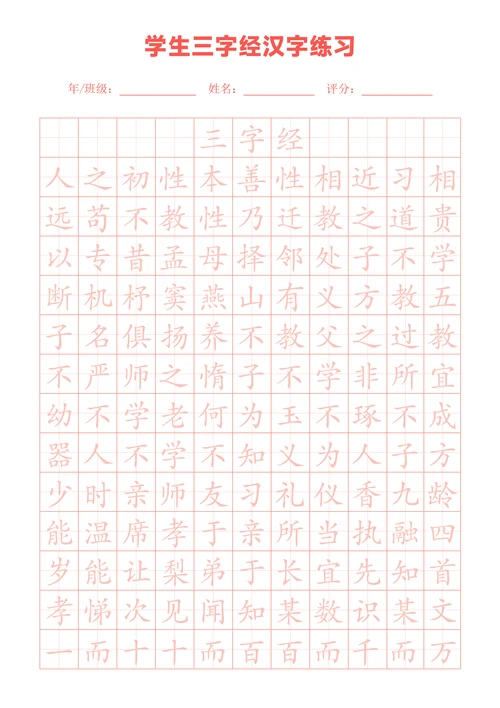 学生三字经汉字练习
年/班级： 姓名： 评分：
三字经
人之初性本善性相近习相
远苟不教性乃迁教之道贵
以专昔孟母择邻处子不学
断机杼窦燕山有义方教五
子名俱扬养不教父之过教
不严师之惰子不学非所宜
幼不学老何为玉不琢不成
器人不学不知义为人子方
少时亲师友习礼仪香九龄
能温席孝于亲所当执融四
岁能让梨弟于长宜先知首
孝悌次见闻知某数识某文
一而十十而百百而千而万